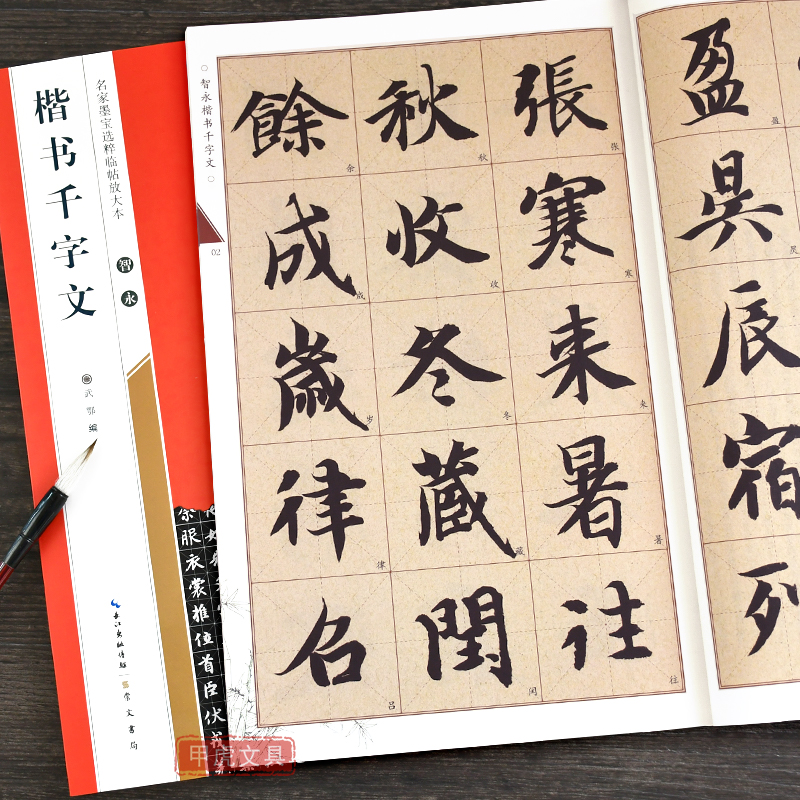 名家墨宝选粹临帖放大本
楷书千字文
智永
武鄂 编
长江出版传媒
崇文书局
服衣裳推位首臣伏戎
智永楷书千字文
02
盈昃辰宿列
盈
昃
張寒来暑往
张
寒
来
暑
往
秋收冬藏閏
秋
收
冬
藏
闰
餘成歲律吕
余
成
岁
律
吕
甲虎文具